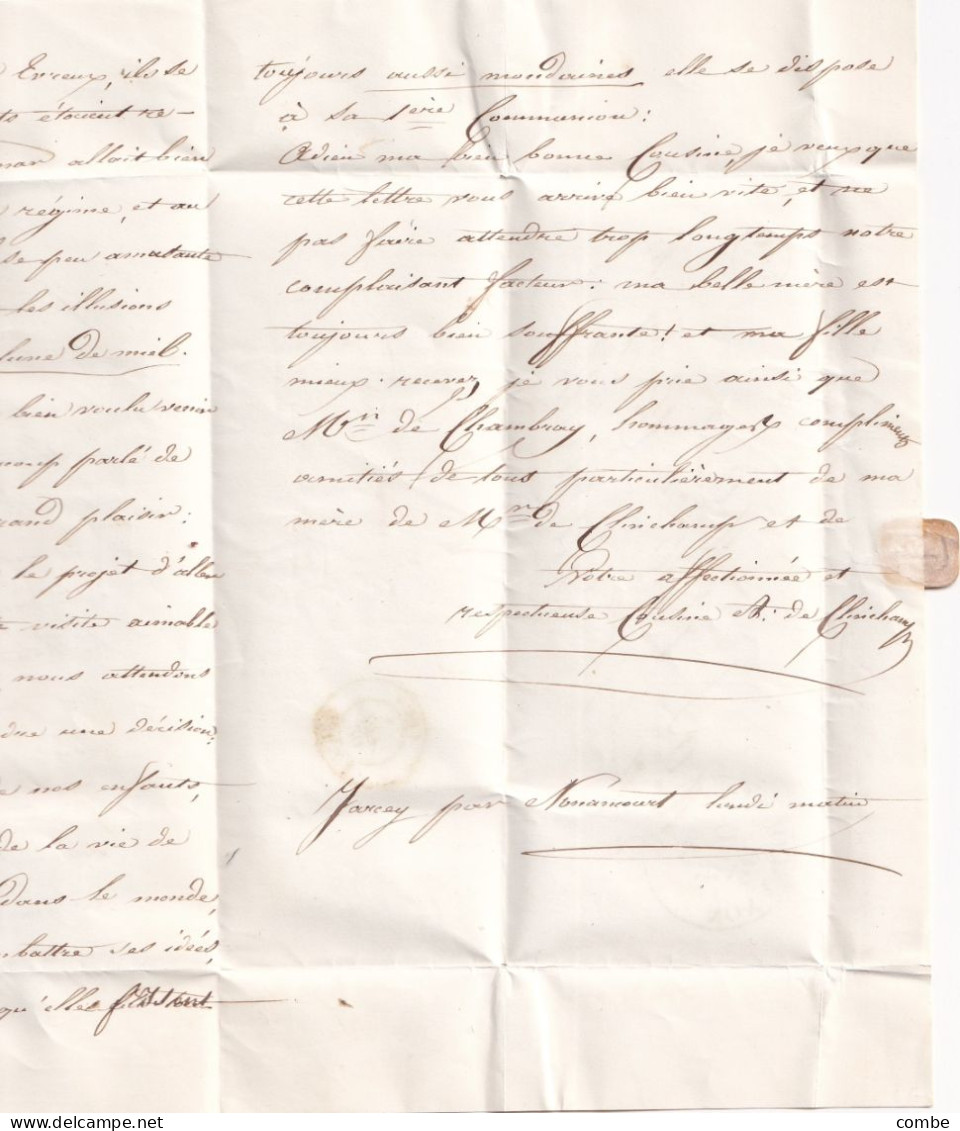 Evreux, ils se
étoient re-
allait bien
régime, et au
se peu amatante
les illusions
lune de miel.
bien voulu venir
parlé de
grand plaisir:
le projet d'aller
visite aimable
nous attendons
une décision;
nos enfants,
de la vie de
dans le monde,
battre ses idées,
qu'elles
toujours aussi mondaines elle se dispose
à sa 1ère Communion:
Adieu ma bien bonne Cousine, je veux que
cette lettre vous arrive bien vite, et ne
pas faire attendre trop longtemps notre
complaisant facteur: ma belle mère est
toujours bien souffrante! et ma fille
mieux. recevez, je vous prie ainsi que
Mr de Chambray, hommages complimens
amitiés de tous particulièrement de ma
mère de Mr de Clinchamp et de
Votre affectionnée et
respectueuse Cousine A: de Clinchamp
Jarcey par Nonancourt lundi matin
combe
delcampe.net